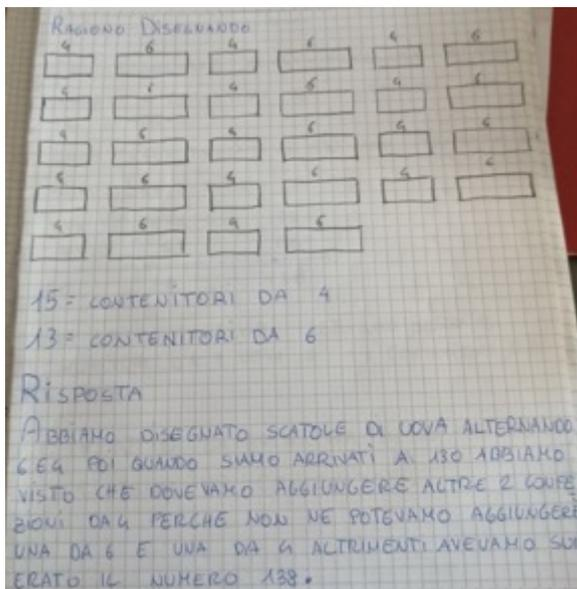 RAGIONO DISEGNANDO
4 6 4 6 4 6
4 6 4 6 4 6
4 6 4 6 4 6
4 6 4 6 4 6
4 6 4 6
15 = CONTENITORI DA 4
13 = CONTENITORI DA 6
RISPOSTA
ABBIAMO DISEGNATO SCATOLE DI UOVA ALTERNANDO
6 E 4 POI QUANDO SIAMO ARRIVATI A 130 ABBIAMO
VISTO CHE DOVEVAMO AGGIUNGERE ALTRE 2 CONFE
ZIONI DA 4 PERCHE NON NE POTEVAMO AGGIUNGERE
UNA DA 6 E UNA DA 4 ALTRIMENTI AVEVAMO SUP
ERATO IL NUMERO 138.